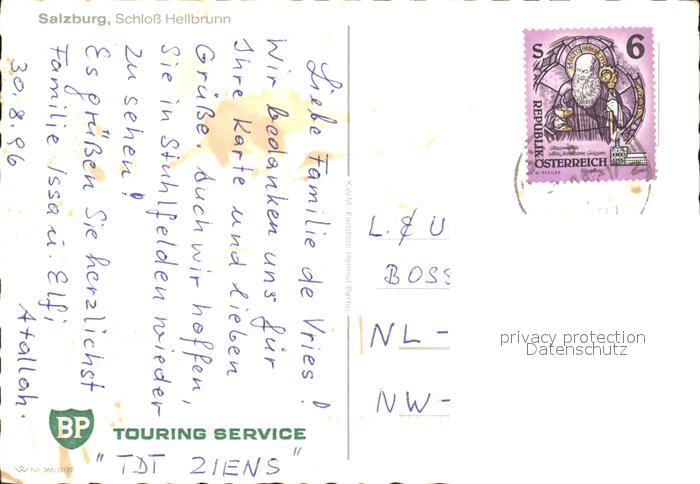 Salzburg, Schloß Hellbrunn
Liebe Familie de Vries!
Wir bedanken uns für
Ihre Karte und lieben
Grüße. Auch wir hoffen,
Sie in Stuhlfelden wieder
zu sehen!
Es grüßen Sie herzlichst
Familie Issa u. Elfi
Atallah.
30.8.96
BP
TOURING SERVICE
"TDT ZIENS"
NP 366/15/20
KWM Farbfoto Helmut Partaj
S 6
REPUBLIK
ÖSTERREICH
L. & U
BOSS
NL -
NW -
privacy protection
Datenschutz